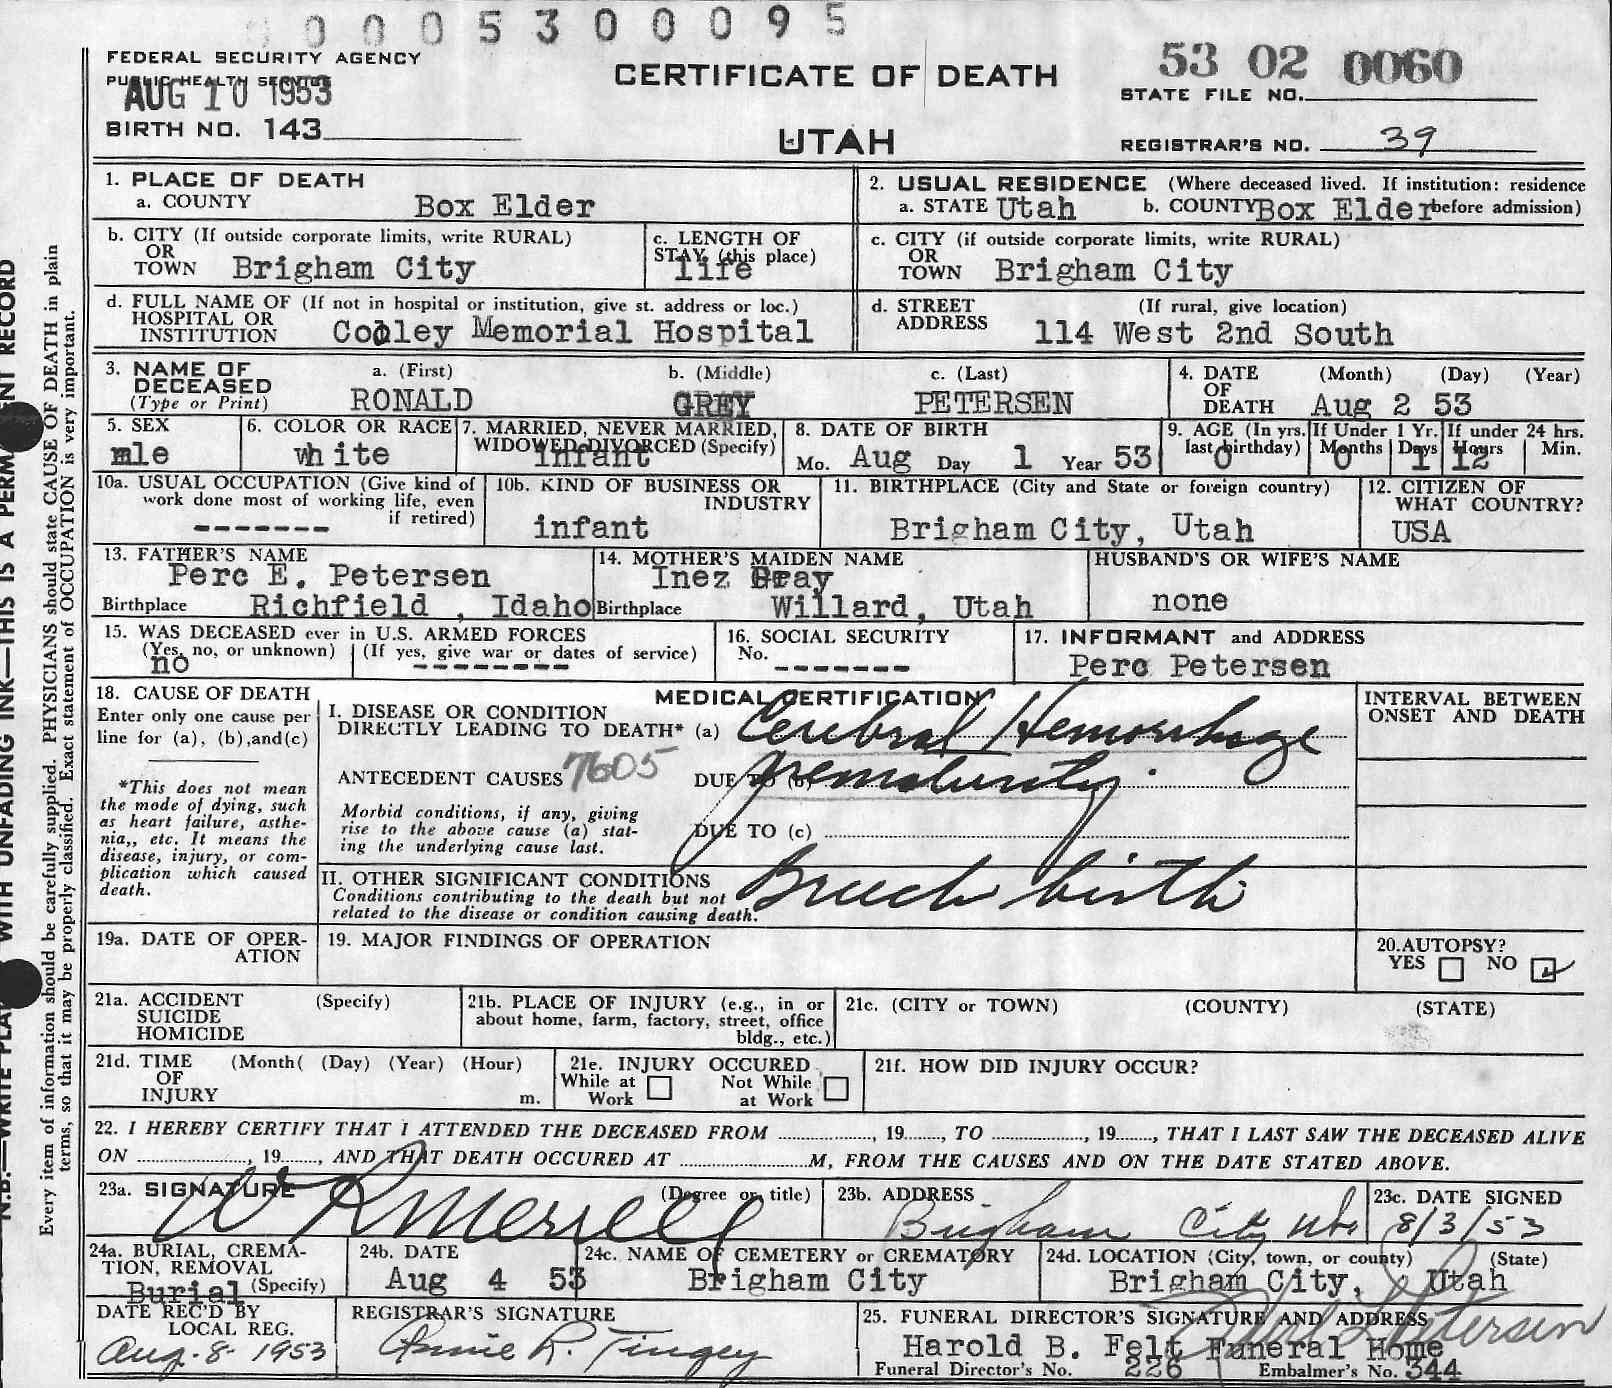 0 0 0 5 3 0 0 0 9 5
FEDERAL SECURITY AGENCY
PUBLIC HEALTH SERVICE
AUG 10 1953
BIRTH NO. 143
CERTIFICATE OF DEATH
UTAH
53 02 0060
STATE FILE NO.
REGISTRAR'S NO. 39
1. PLACE OF DEATH
a. COUNTY Box Elder
2. USUAL RESIDENCE (Where deceased lived. If institution: residence
a. STATE Utah b. COUNTY Box Elder before admission)
b. CITY (If outside corporate limits, write RURAL)
OR
TOWN Brigham City
c. LENGTH OF
STAY (this place)
life
c. CITY (if outside corporate limits, write RURAL)
OR
TOWN Brigham City
d. FULL NAME OF (If not in hospital or institution, give st. address or loc.)
HOSPITAL OR
INSTITUTION Cooley Memorial Hospital
d. STREET (If rural, give location)
ADDRESS 114 West 2nd South
3. NAME OF a. (First) b. (Middle) c. (Last)
DECEASED
(Type or Print) RONALD GREY PETERSEN
4. DATE (Month) (Day) (Year)
OF
DEATH Aug 2 53
5. SEX
mle
6. COLOR OR RACE
white
7. MARRIED, NEVER MARRIED,
WIDOWED DIVORCED (Specify)
infant
8. DATE OF BIRTH
Mo. Aug Day 1 Year 53
9. AGE (In yrs. If Under 1 Yr. If under 24 hrs.
last birthday) Months Days Hours Min.
0 0 1 12
10a. USUAL OCCUPATION (Give kind of
work done most of working life, even
if retired)
-------
10b. KIND OF BUSINESS OR
INDUSTRY
infant
11. BIRTHPLACE (City and State or foreign country)
Brigham City, Utah
12. CITIZEN OF
WHAT COUNTRY?
USA
13. FATHER'S NAME
Perc E. Petersen
Birthplace Richfield , Idaho
14. MOTHER'S MAIDEN NAME
Inez Gray
Birthplace Willard, Utah
HUSBAND'S OR WIFE'S NAME
none
15. WAS DECEASED ever in U.S. ARMED FORCES
(Yes, no, or unknown) (If yes, give war or dates of service)
no --------
16. SOCIAL SECURITY
No. -------
17. INFORMANT and ADDRESS
Perc Petersen
18. CAUSE OF DEATH
Enter only one cause per
line for (a), (b),and(c)
*This does not mean
the mode of dying, such
as heart failure, asthe-
nia,, etc. It means the
disease, injury, or com-
plication which caused
death.
MEDICAL CERTIFICATION
I. DISEASE OR CONDITION
DIRECTLY LEADING TO DEATH* (a) Cerebral Hemorrhage
ANTECEDENT CAUSES 7605 DUE TO (b) prematurity.
Morbid conditions, if any, giving
rise to the above cause (a) stat-
ing the underlying cause last.
DUE TO (c)
II. OTHER SIGNIFICANT CONDITIONS
Conditions contributing to the death but not
related to the disease or condition causing death.
Breech birth
INTERVAL BETWEEN
ONSET AND DEATH
19a. DATE OF OPER-
ATION
19. MAJOR FINDINGS OF OPERATION
20.AUTOPSY?
YES NO
21a. ACCIDENT (Specify)
SUICIDE
HOMICIDE
21b. PLACE OF INJURY (e.g., in or
about home, farm, factory, street, office
bldg., etc.)
21c. (CITY or TOWN) (COUNTY) (STATE)
21d. TIME (Month( (Day) (Year) (Hour)
OF
INJURY m.
21e. INJURY OCCURED
While at Not While
Work at Work
21f. HOW DID INJURY OCCUR?
22. I HEREBY CERTIFY THAT I ATTENDED THE DECEASED FROM ................, 19......., TO ................, 19......, THAT I LAST SAW THE DECEASED ALIVE
ON ................, 19......, AND THAT DEATH OCCURED AT ....................M, FROM THE CAUSES AND ON THE DATE STATED ABOVE.
23a. SIGNATURE (Degree or title)
W R Merrell
23b. ADDRESS
Brigham City Utah
23c. DATE SIGNED
8/3/53
24a. BURIAL, CREMA-
TION, REMOVAL
Burial (Specify)
24b. DATE
Aug 4 53
24c. NAME OF CEMETERY or CREMATORY
Brigham City
24d. LOCATION (City, town, or county) (State)
Brigham City, Utah
DATE REC'D BY
LOCAL REG.
Aug. 8 1953
REGISTRAR'S SIGNATURE
Annie R. Tingey
25. FUNERAL DIRECTOR'S SIGNATURE AND ADDRESS
Petersen
Harold B. Felt Funeral Home
Funeral Director's No. 226 Embalmer's No. 344
Every item of information should be carefully supplied. PHYSICIANS should state CAUSE OF DEATH in plain
terms, so that it may be properly classified. Exact statement of OCCUPATION is very important.
N.B.—WRITE WITH UNFADING INK—THIS IS A RECORD